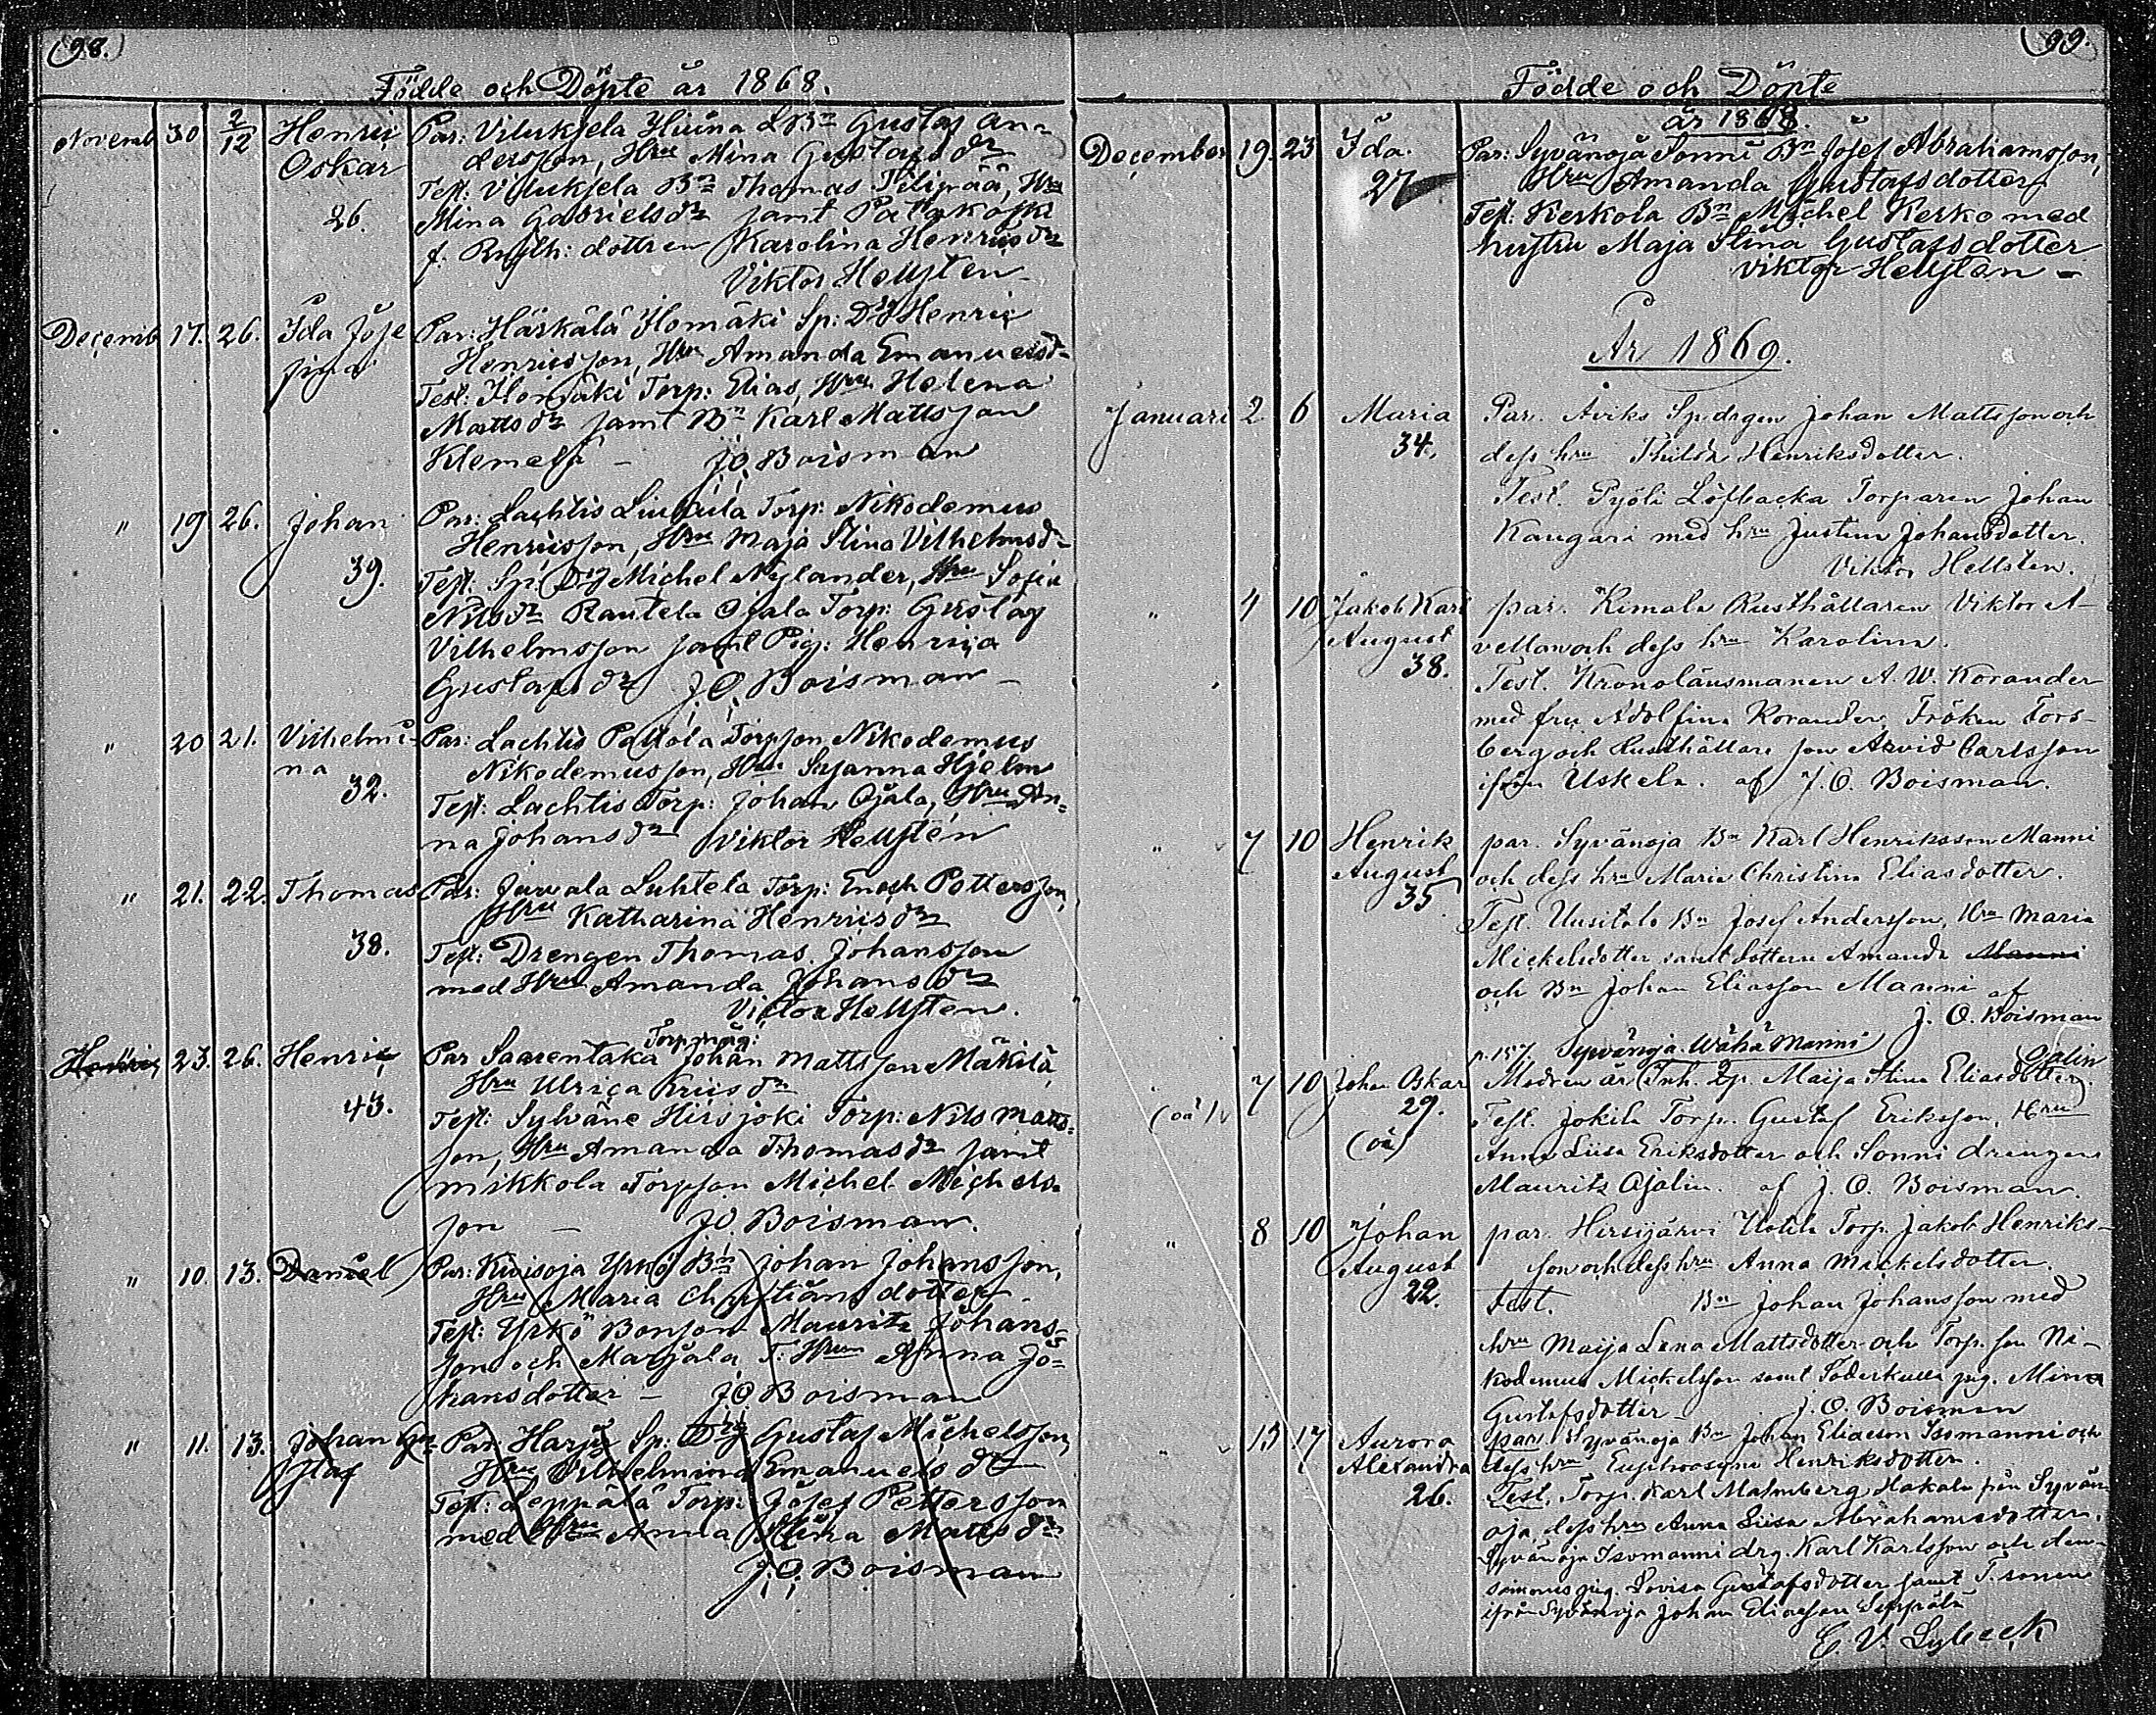 98.
Födde och Döpte år 1868.
Novemb 30 2/12 Henric Par: Vilukjela Hiina LBn Gustaf An=
Oskar dersson, Hru Mina Gustafsdr
Test: Vilukjela Bn Thomas Pilipää, Hru
26. Mina Gabrielsdr samt Pattakoski
f. Rusth: dottren Karolina Henricsdr
Viktor Hellsten
Decemb 17. 26. Ida Jose Par: Härkälä Ilomäki Sp: Dg Henric
fina Henricsson, Hru Amanda Emanuelsd=
Test: Ilomäki Torp: Elias, Hru Helena
Mattsdr samt Bn Karl Mattsson
Klemelä – J.O. Boisman
" 19 26. Johan Par: Lachtis Torp: Nikodemus
Henricsson, Hru Maja Stina Vilhelmsd=
39. Test: Sp: Dg Michel Nylander, Hru Sofia
Nilsdr Rautela Ojala Torp: Gustaf
Vilhelmsson samt Pig: Henrica
Gustafsdr J.O. Boisman –
" 20 21. Vilhelmi- Par: Lachtis Pallola Torpson Nikodemus
na Nikodemusson, Hru Susanna Hjelm
32. Test: Lachtis Torp: Johan Ojala, Hru An=
na Johansdr Viktor Hellsten
" 21. 22. Thomas Par: Jurvala Luhtela Torp: Enoch Pettersson,
Hru Katharina Henricsdr
38. Test: Drengen Thomas Johansson
med Hru Amanda Johansdr
Victor Hellsten.
Henric 23. 26. Henric Par Saarentaka Johan Mattsson Mäkilä
Hru Ulrica
43. Test: Sylväne Hirsjoki Torp: Nils Matts=
son, Hru Amanda Thomasdr samt
Mikkola Torpson Michel Michels=
son – J.O. Boisman.
" 10. 13. Daniel Par: Kivisoja Yrkö Bn Johan Johansson,
Hru Maria Christiansdotter
Test: Yrkö Bonson Mauritz Johans=
son och Marjala T: Hru Anna Jo=
hansdotter – J.O. Boisman
" 11. 13. Johan Gu= Par: Harju Sp: Dg Gustaf Michelsson,
staf Hru Vilhelmina Emanuelsdr
Test: Leppälä Torp: Josef Pettersson
med Hru Anna Stina Mattsdr
J.O. Boisman
99.
Födde och Döpte
år 1868.
December 19. 23 Ida. Par: Syvänojä Sonni Bn Josef Abrahamsson,
27 Hru Amanda Gustafsdotter
Test: Kerkola Bn Michel Kerko med
hustru Maja Stina Gustafsdotter
Viktor Hellsten –
År 1869.
Januari 2 6 Maria Par. Aviks Sp.drgen Johan Mattsson och
34. dess hru Thilda Henriksdotter.
Test. Pyöli Löfbacka Torparen Johan
Kangari med hru Justina Johansdotter.
Viktor Hellsten.
" 4 10 Jakob Karl par. Kimala Rusthållaren Viktor A-
August vellan och dess hru Karolina.
38. Test. Kronolänsmanen A. W. Korander
med fru Adolfina Korander, Fröken Fors-
berg och Rusthållare son Arvid Carlsson
ifrån Uskela. af J. O. Boisman.
" 7 10 Henrik par. Syvänoja Bn Karl Henriksson Manni
August och dess hru Maria Christina Eliasdotter.
35 Test. Uusitalo Bn Josef Andersson, Hru Maria
Mickelsdotter samt dottern Amanda Manni
och Bn Johan Eliasson Manni af
J. O. Boisman
p. 157. Syvänoja Wähä Manni
" 7 10 Johan Oskar Modren är Inh. Maija Stina Eliasdotter Ojalin.
(oä) 29. Test. Jokila Torp. Gustaf Eriksson, Hru
(oä) Anna Liisa Eriksdotter och Sonni drengen
Mauritz Ojalin. af J. O. Boisman.
" 8 10 Johan par. Hirsijärvi Torp. Jakob Henriks-
August son och dess hru Anna Mickelsdotter.
22. Test. Bn Johan Johansson med
hru Maija Lena Mattsdotter och Torp. son Ni-
kodemus Mickelsson samt Söderkulla pig. Mina
Gustafsdotter – J. O. Boisman
" 13 17 Aurora par. Syvänoja Bn Johan Eliasson Isomanni och
Alexandra dess hru Euphrosyne Henriksdotter.
26. Test. Torp. Karl Malmberg Hakala från Syvän-
oja, dess hru Anna Liisa Abrahamsdotter.
Syvänoja Isomanni drg. Karl Karlsson och den-
sammes pig. Lovisa Gustafsdotter samt T. sonen
ifrån Syvänoja Johan Eliasson Seppälä
E. V. Lybeck